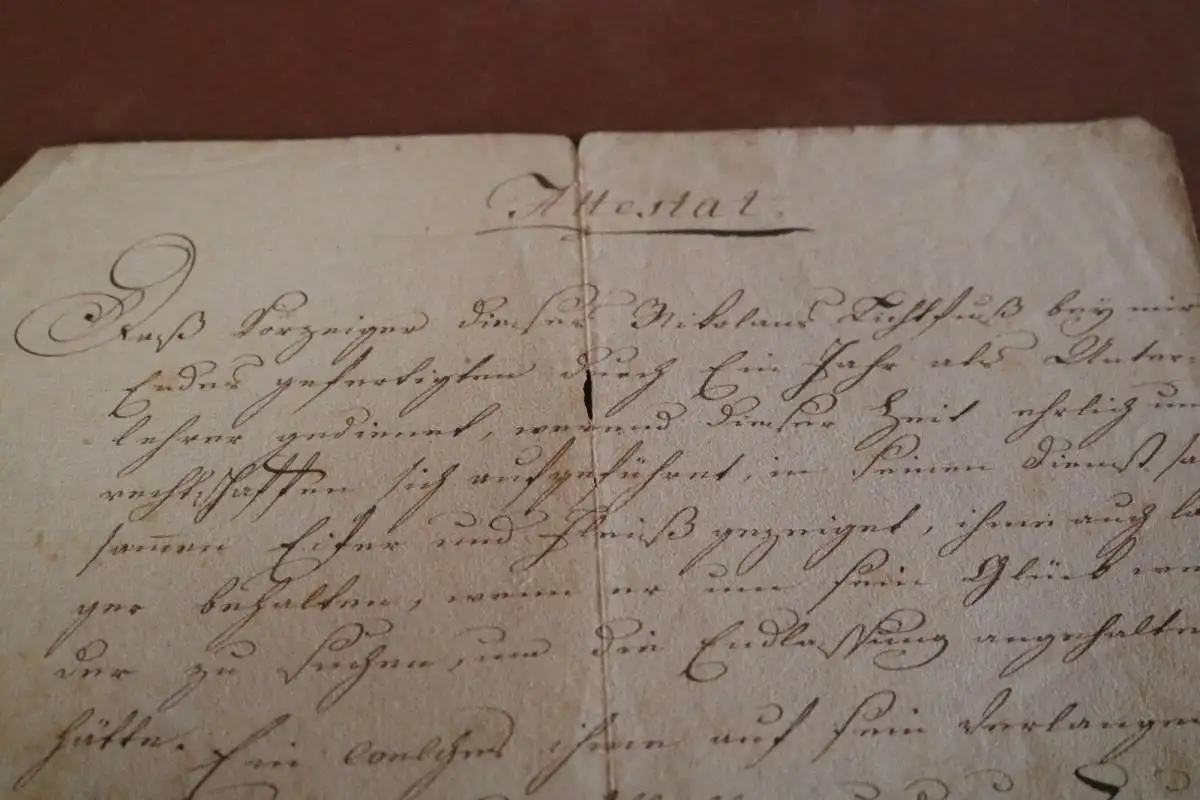 Attestat.
Daß Vorzeiger dieses Nikolaus Lichtfuß bey mir
Endes gefertigten durch Ein Jahr als Unter-
lehrer gedienet, werend dieser Zeit ehrlich un
rechtschaffen sich aufgeführet, in seinen Dienst sa
samen Eifer und Fleiß gezeiget, ihme auch la
ger behalten, wenn er um sein Glück we
der zu suchen, um die Endlassung angehalte
hätte. Ein welches ihme auf sein Verlangen